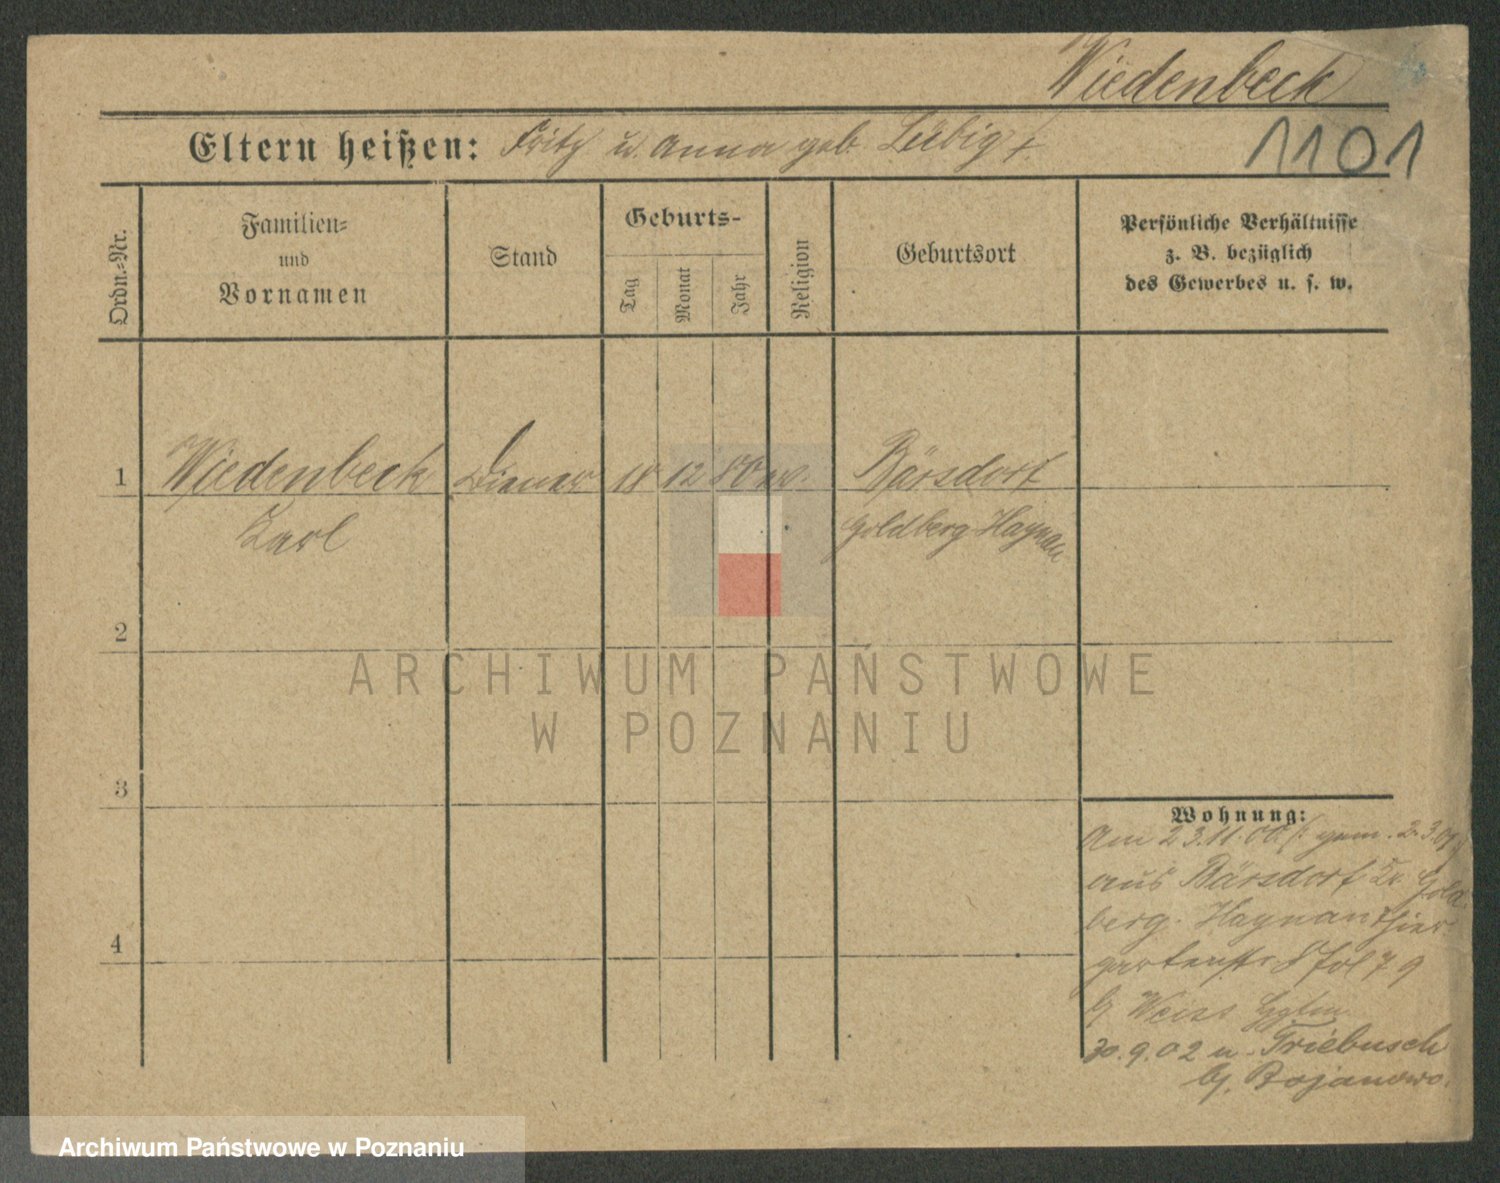 Wiedenbeck
Eltern heißen: Fritz u. Anna geb. Liebig †.
1101
Ordn.=Nr.
Familien=
und
Vornamen
Stand
Geburts-
Tag
Monat
Jahr
Religion
Geburtsort
Persönliche Verhältnisse
z. B. bezüglich
des Gewerbes u. s. w.
1 Wiedenbeck Diener 18 12 80 ev. Bärsdorf
Karl Goldberg-Haynau
2
ARCHIWUM PAŃSTWOWE
W POZNANIU
3
Wohnung:
Am 23.11.00 (: gem. 2.3.01
aus Bärsdorf Kr. Gold
berg. Haynau Thier
gartenstr 8 Fol 79
b/ Weiss
30.9.02 n. Triebusch
b/. Bojanowo.
4
Archiwum Państwowe w Poznaniu